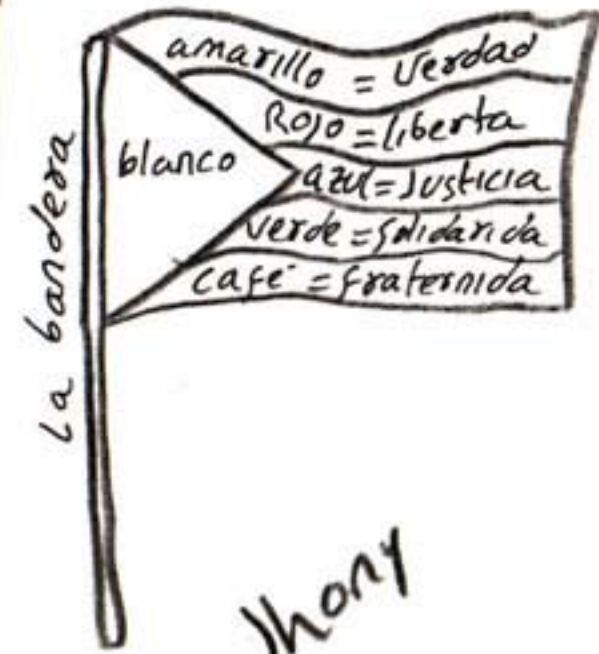 La bandera
amarillo = Verdad
Rojo = liberta
blanco
azul = Justicia
verde = Solidarida
café = fraternida
Jhony